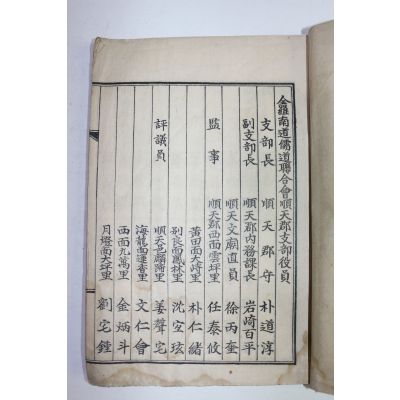 全羅南道儒道聯合會順天郡支部役員
支部長 順天郡守 朴道淳
副支部長 順天郡內務課長 岩崎百平
順天文廟直員 徐丙奎
監事 順天郡西面雲坪里 任泰攸
黃田面大峙里 朴仁緖
別良面鳳林里 沈宜玹
評議員 順天邑麟蹄里 姜聲宅
海龍面運香里 文仁會
西面九萬里 金炳斗
月燈面大坪里 劉宅鍾